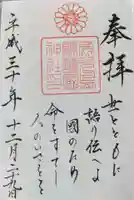 奉拝
世とともに
語り伝へよ
国のため
命をすてし
人のいさをを
平成三十年十二月